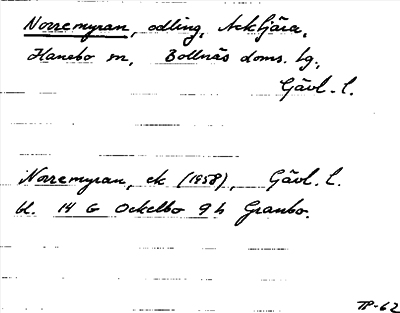 Norremyran, odling, Acktjära,
Hanebo sn, Bollnäs doms. lg.,
Gävl. l.
Norremyran, ek (1958), Gävl. l.
bl. 14 G Ockelbo 9 h Granbo.
TP-62